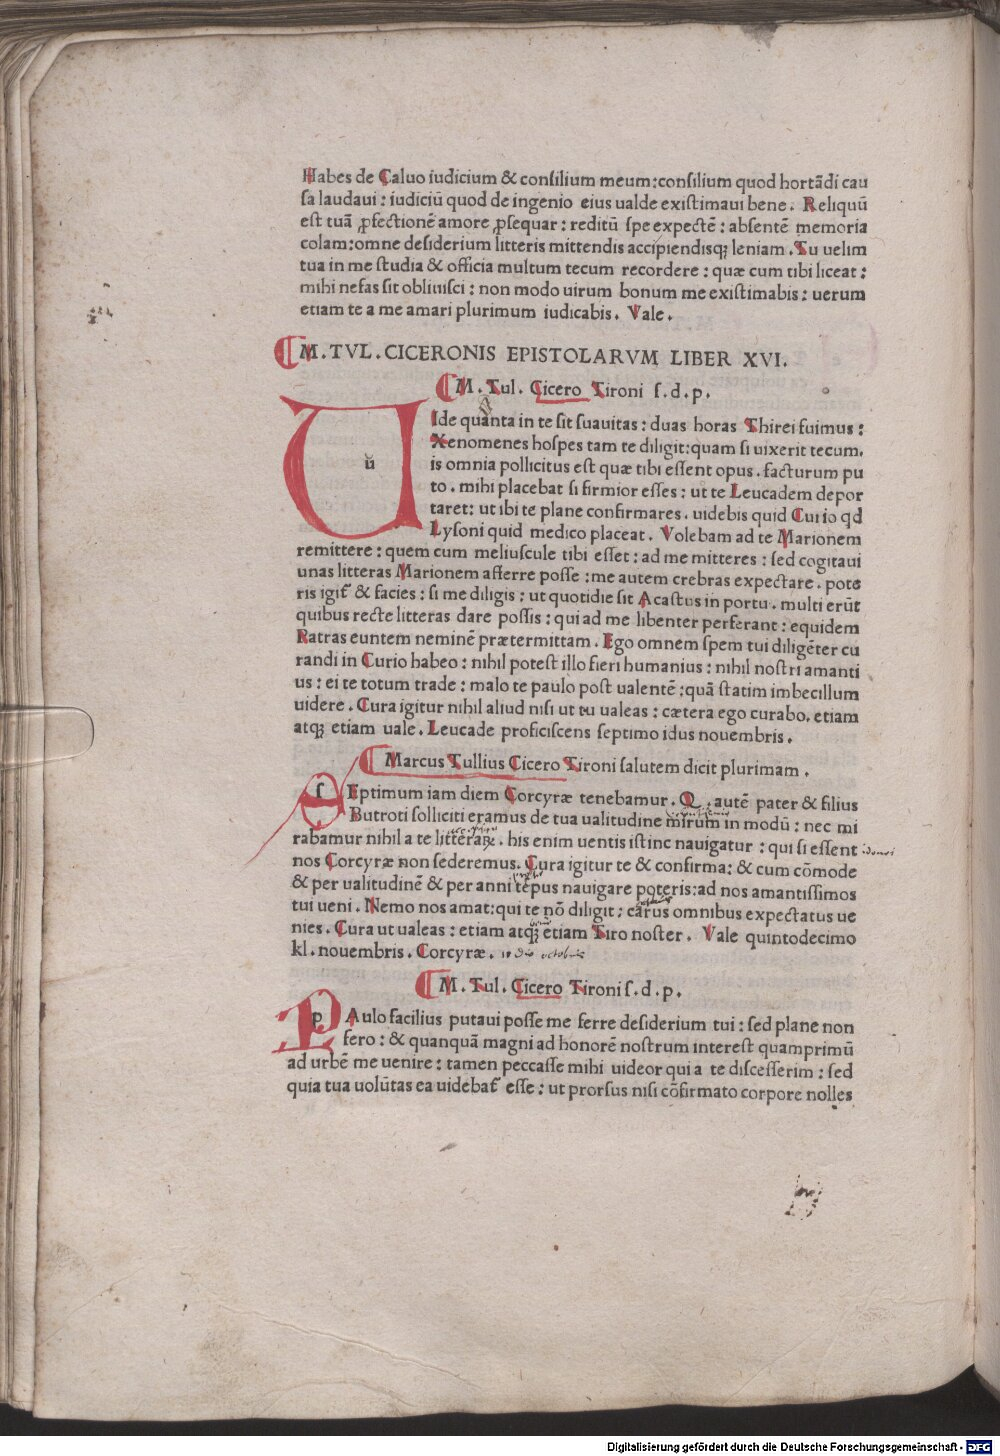 Habes de Caluo iudicium & conſilium meum:conſilium quod hortādi cau
ſa laudaui : iudiciū quod de ingenio eius ualde exiſtimaui bene. Reliquū
eſt tuā ꝓfectionē amore ꝓſequar : reditū ſpe expectē : abſentē memoria
colam:omne deſiderium litteris mittendis accipiendisqꝫ leniam. Tu uelim
tua in me ſtudia & officia multum tecum recordere : quæ cum tibi liceat :
mihi nefas ſit obliuiſci : non modo uirum bonum me exiſtimabis : uerum
etiam te a me amari plurimum iudicabis. Vale.
M.TVL.CICERONIS EPISTOLARVM LIBER XVI.
M.Tul.Cicero Tironi ſ.d.p.
u
Ide quanta in te ſit ſuauitas : duas horas Thirei fuimus :
Xenomenes hoſpes tam te diligit:quam ſi uixerit tecum.
is omnia pollicitus eſt quæ tibi eſſent opus. facturum pu
to. mihi placebat ſi firmior eſſes : ut te Leucadem depor
taret: ut ibi te plane confirmares. uidebis quid Curio qd
Lyſoni quid medico placeat. Volebam ad te Marionem
remittere : quem cum meliuſcule tibi eſſet : ad me mitteres : ſed cogitaui
unas litteras Marionem afferre poſſe : me autem crebras expectare. pote
ris igit̃ & facies : ſi me diligis : ut quotidie ſit Acaſtus in portu. multi erūt
quibus recte litteras dare poſſis : qui ad me libenter perferant : equidem
Patras euntem neminē prætermittam. Ego omnem ſpem tui diligēter cu
randi in Curio habeo : nihil poteſt illo fieri humanius : nihil noſtri amanti
us : ei te totum trade : malo te paulo poſt ualentē :quā ſtatim imbecillum
uidere. Cura igitur nihil aliud niſi ut tu ualeas : cætera ego curabo. etiam
atqꝫ etiam uale. Leucade proficiſcens ſeptimo idus nouembris.
Marcus Tullius Cicero Tironi ſalutem dicit plurimam.
ſ
Eptimum iam diem Corcyræ tenebamur. Q. autē pater & filius
Butroti ſolliciti eramus de tua ualitudine mirum in modū : nec mi
rabamur nihil a te litterarꝫ. his enim uentis iſtinc nauigatur : qui ſi eſſent
nos Corcyræ non ſederemus. Cura igitur te & confirma: & cum cōmode
& per ualitudinē & per anni tēpus nauigare poteris:ad nos amantiſſimos
tui ueni. Nemo nos amat:qui te nō diligit : carus omnibus expectatus ue
nies. Cura ut ualeas : etiam atqꝫ etiam Tiro noſter. Vale quintodecimo
kl. nouembris. Corcyræ.
M.Tul.Cicero Tironi ſ.d.p.
p
Aulo facilius putaui poſſe me ferre deſiderium tui : ſed plane non
fero : & quanquā magni ad honorē noſtrum intereſt quamprimū
ad urbē me uenire : tamen peccaſſe mihi uideor qui a te diſceſſerim : ſed
quia tua uolūtas ea uidebat̃ eſſe : ut prorſus niſi cōfirmato corpore nolles
Digitalisierung gefördert durch die Deutsche Forschungsgemeinschaft - DFG